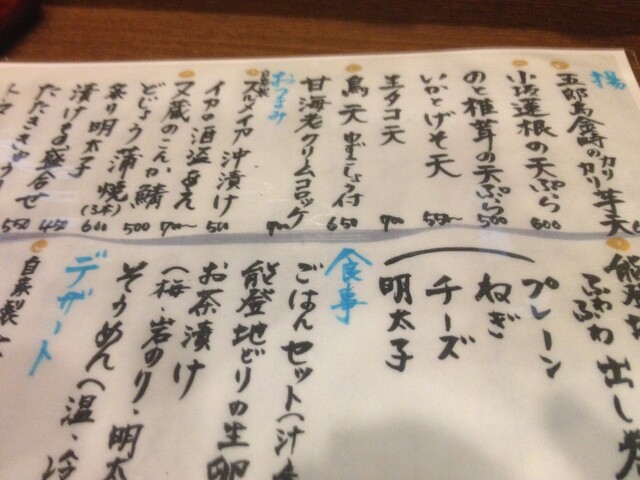 揚
五郎島金時のカリカリ芋天
小坂蓮根の天ぷら 600
のと椎茸の天ぷら 500
いかとげそ天 550~
生タコ天 700
鳥天 ゆずこしょう付 650
甘海老クリームコロッケ 700
おつまみ
自家製 スルメイカ沖漬け
イカの酒盗 500
又蔵のこんか鯖 700~
どじょう蒲焼(3本) 500
炙り明太子 600
漬けもの盛合せ 450
たたききゅうり 550
ふわふわ 出し巻
プレーン
ねぎ
チーズ
明太子
食事
ごはんセット(汁
能登地どりの生卵
お茶漬け
(梅・岩のり・明太
そうめん(温・冷
デザート
自家製